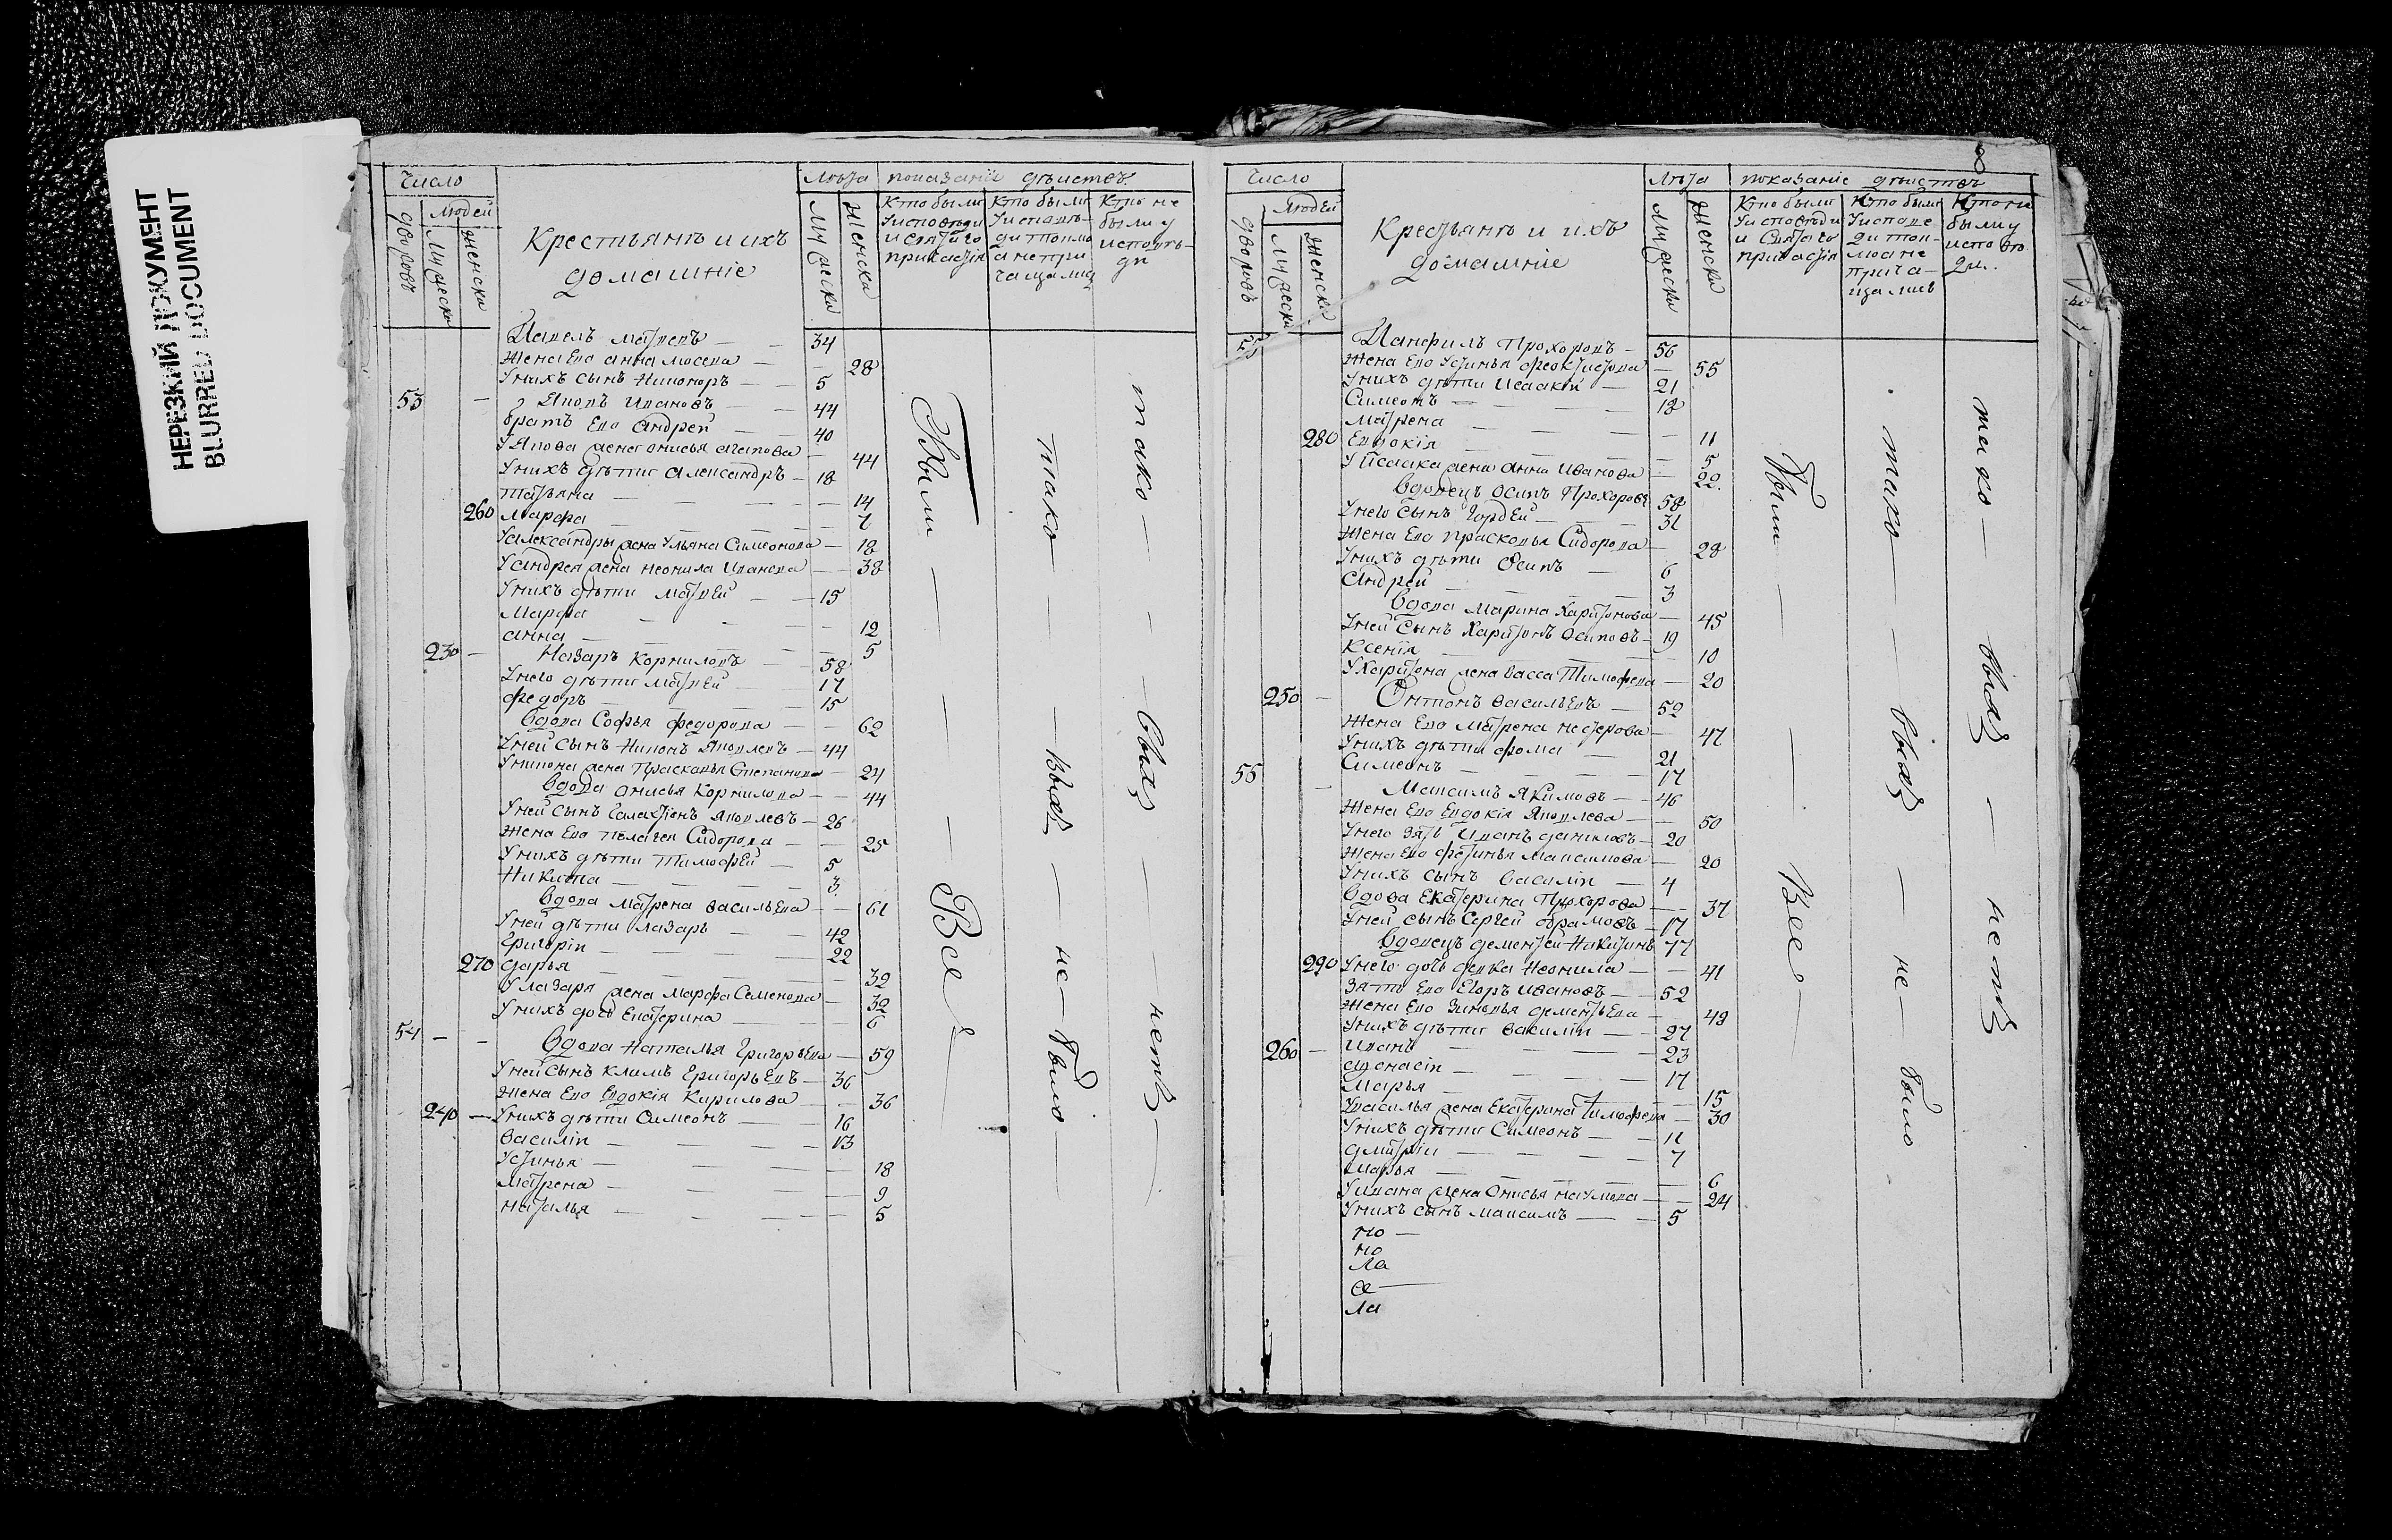 НЕРЕЗКИЙ ДОКУМЕНТ
BLURRED DOCUMENT
Число
Людей
дворовъ
Мужеска
женска
Крестьянъ и ихъ
домашніе
Лѣта
Мужеска
женска
показаніе дѣйствъ
Кто были
у исповѣди
и святаго
причастія
Кто были
у исповѣ-
ди токмо
а не при
чащались
Кто не
были у
исповѣ-
ди
Павелъ Матвеевъ — 34
жена Его анна Мосеева — 28
У нихъ сынъ Никоноръ — 5
53 — Яковъ Ивановъ — 44
братъ Его Андрей — 40
У Якова жена Анисья Агапова — 44
У нихъ дѣти Александръ — 18
Татьяна — 14
260 Марфа — 7
У александры жена Ульяна Симеонова — 18
У андрея жена неонила Иванова — 38
У нихъ дѣти Матвей — 15
Марфа — 12
анна — 5
230 — Назаръ Корниловъ — 58
У него дѣти Матвей — 17
федоръ — 15
Вдова Софья федорова — 62
У ней сынъ Никонъ Яковлевъ — 44
У никона жена Прасковья Степанова — 24
Вдова онисья Корнилова — 44
У ней сынъ Галактіонъ Яковлевъ — 26
жена Его Пелагея Сидорова — 25
У нихъ дѣти Тимофей — 5
Никита — 3
Вдова Матрена васильева — 61
У ней дѣти лазарь — 42
Григоріи — 22
270 дарья — 32
У лазаря жена Марфа Семенова — 32
У нихъ дочь Екатерина — 6
54 — Вдова Наталья Григорьева — 59
У ней сынъ Климъ Григорьевъ — 36
жена Его Евдокія Кирилова — 36
240 — У нихъ дѣти Симеонъ — 16
василіи — 13
Устинья — 18
Матрена — 9
наталья — 5
Были — Все
тако — выхъ — не — было
тако — выхъ — нетъ
8
Число
Людей
дворовъ
Мужеска
женска
Крестьянъ и ихъ
домашніе
Лѣта
Мужеска
женска
показаніе дѣйствъ
Кто были
у исповѣди
и Святаго
причастія
Кто были
у исповѣ
ди ток-
мо а не
прича-
щались
Кто не
были у
исповѣ
ди.
Панфилъ Прохоровъ — 56
жена Его Устинья феоктистова — 55
У нихъ дѣти Исаакіи — 21
Симеонъ — 18
Матрена — 11
280 Евдокія — 5
У Исаака жена Анна Иванова — 22.
Вдовецъ Осипъ Прохоровъ 58
У него сынъ Гордей — 31
жена Его Прасковья Сидорова — 28
У нихъ дѣти Осипъ — 6
Андрей — 3
Вдова Марина Харитонова — 45
У ней сынъ Харитонъ Осиповъ — 19
Ксенія — 10
У Харитона жена васса Тимофеева — 20
250 — Онтонъ васильевъ — 52
жена Его Матрена нестерова — 47
У нихъ дѣти фома — 21
Симеонъ — 17
55 — Максимъ Якимовъ — 46
жена Его Евдокія Яковлева — 50
У него зять Иванъ даниловъ — 20
жена Его фетинья Максимова — 20
У нихъ сынъ василіи — 4
Вдова Екатерина Прохорова — 37
У ней сынъ Сергей абрамовъ — 17
Вдовецъ дементей Никитинъ 77
290 У него дочь девка Неонила — 41
зять Его Егоръ Ивановъ — 52
жена Его Зиновья дементьева — 49
У нихъ дѣти василіи — 27
260 — Иванъ — 23
афонасіи — 17
Марья — 15
У василья жена Екатерина Тимофеева — 30
У нихъ дѣти Симеонъ — 11
дмитріи — 7
Марья — 6
У ивана жена Онисья наумова — 24
У нихъ сынъ Максимъ — 5
но —
но
ла
се —
ла
Были — Все
тако — выхъ — не — было
тако — выхъ — нетъ